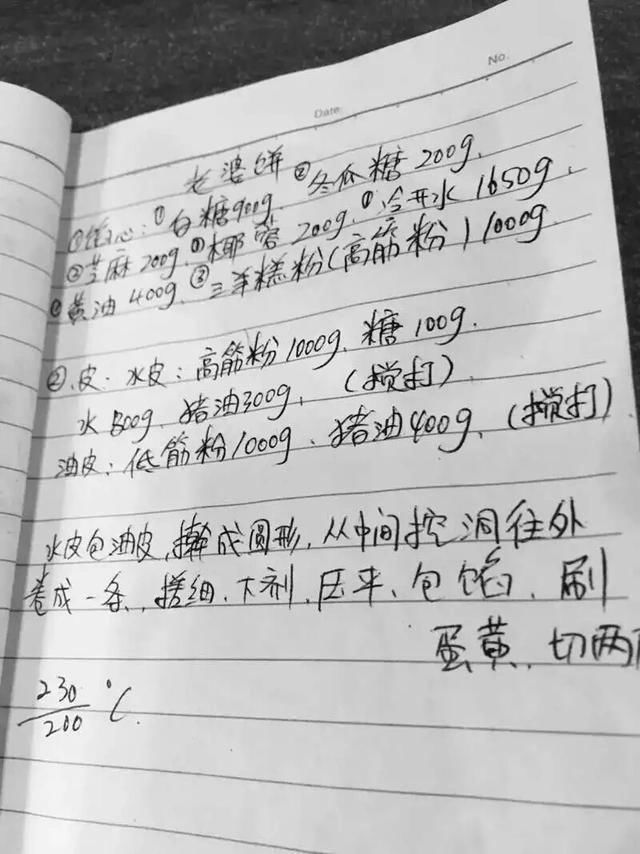 No.
Date:
老婆饼 ②冬瓜糖200g、
①馅心:①白糖900g.
②芝麻200g、①椰蓉200g、①冷开水1650g、
①黄油400g、③三羊糕粉(高筋粉)1000g
②.皮、水皮:高筋粉1000g、糖100g.
水 猪油300g、(搅打)
油皮:低筋粉1000g、猪油400g、(搅打)
水皮包油皮,擀成圆形,从中间挖洞往外
卷成一条,搓细、下剂、压平、包馅、刷
蛋黄、切两
230/200 ℃.